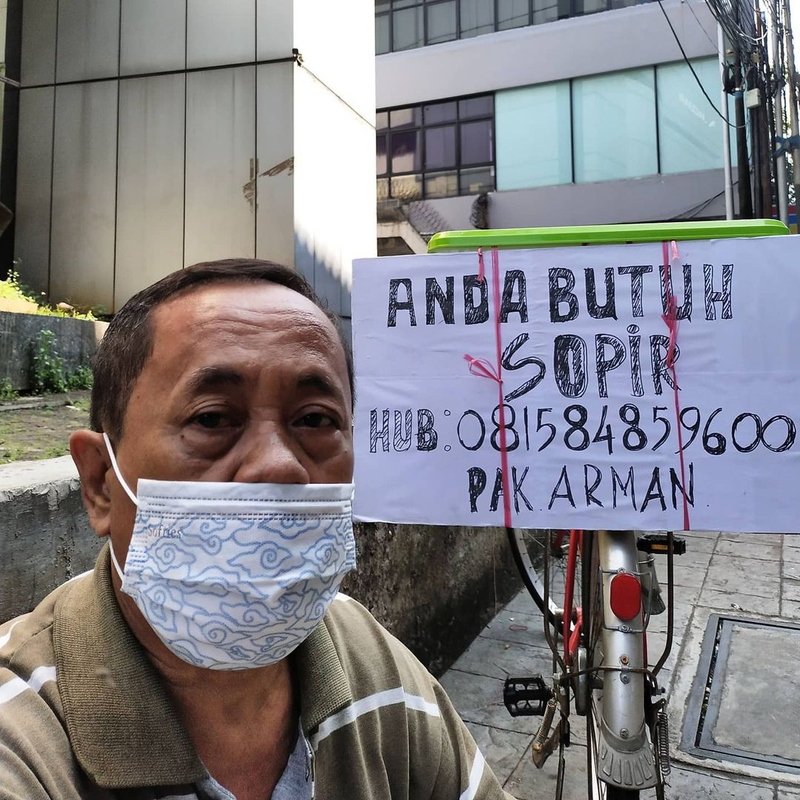 ANDA BUTUH
SOPIR
HUB: 081584859600
PAK. ARMAN